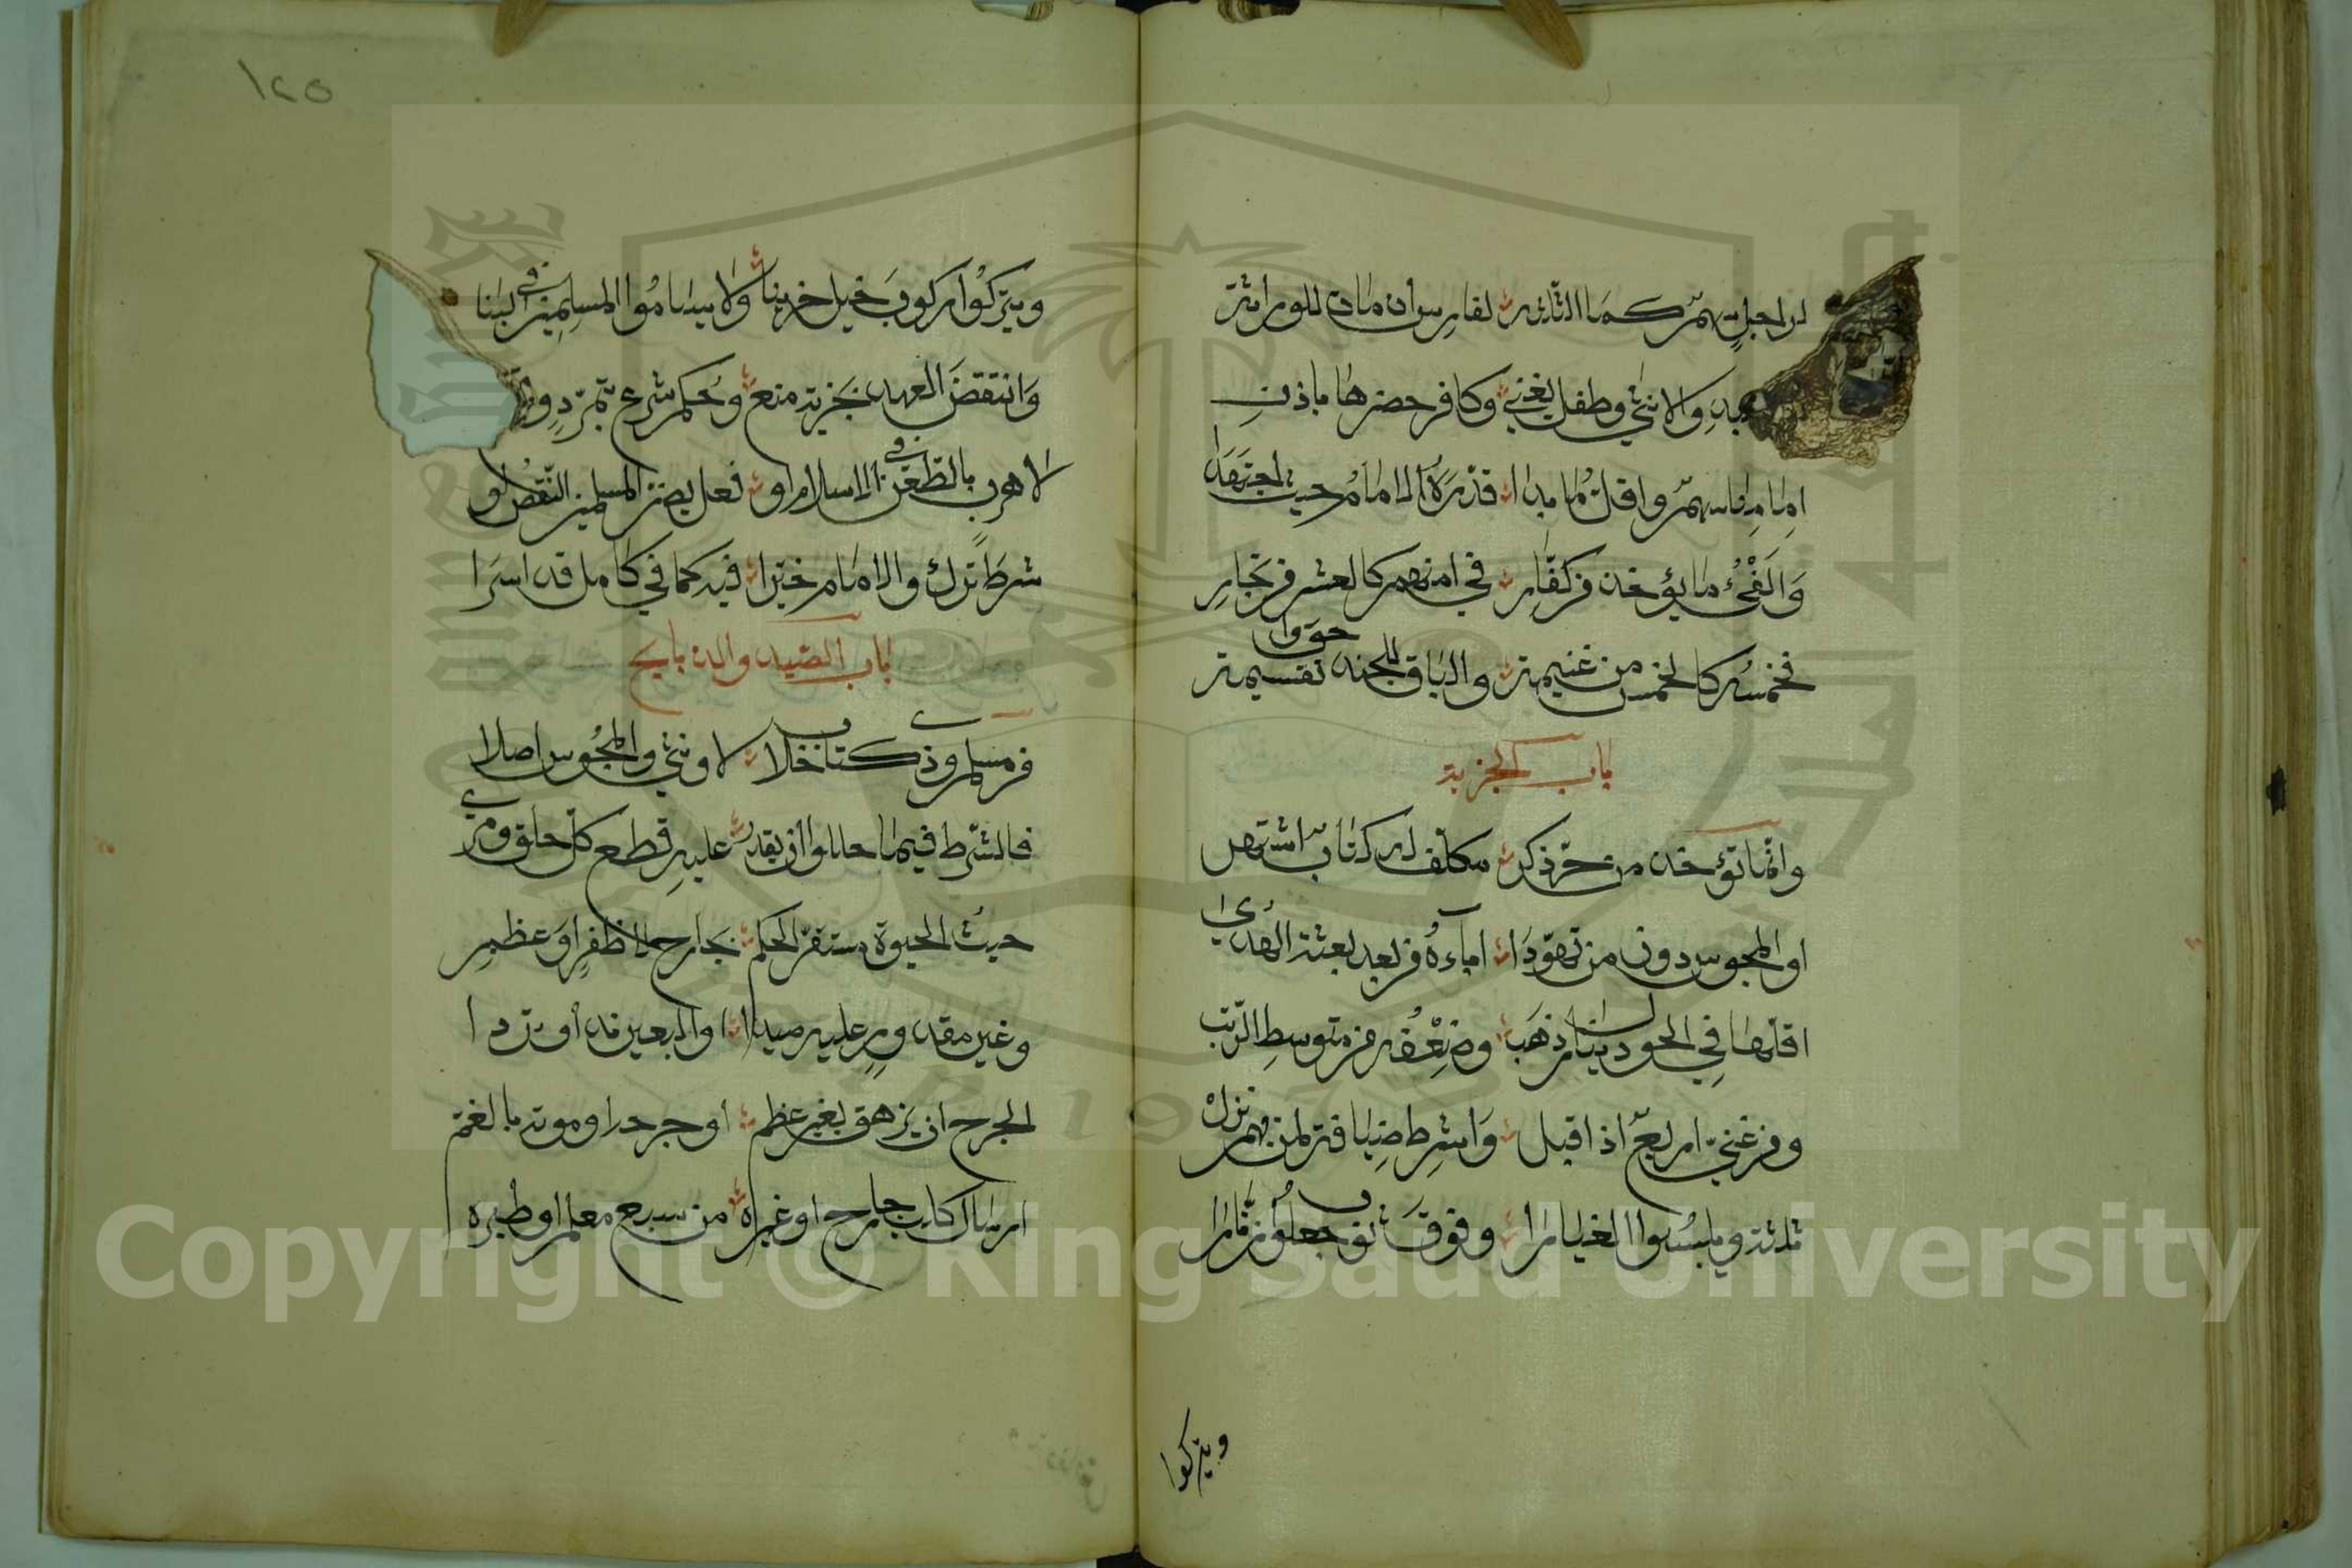 لراجل سهم كما الثلاثه لفارس ان مات للوراثة
والانثى وطفل يغني وكافر حضرها باذن
امامنا سهم واقل ما بدا قدره الامام حيث اجتهدا
والفيء ما يؤخذ من كفار في امنهم كالعشر من تجار
فخمسه كالخمس من غنيمة والباقي للجند حووا تقسيمه
باب الجزية
وانما تؤخذ من حر ذكر مكلف له كتاب اشتهر
او المجوس دون من تهودا اباءه من بعد بعثة الهدى
اقلها في الحول دينار ذهب وضعفه من متوسط الرتب
ومن غني اربع اذا قبل واشرط ضيافة لمن بهم نزل
ثلثة ويلبسوا الغيارا وفوق ثوب جعلوا زنارا
ويتركوا
١٢٥
ويتركوا ركوب خيل حربنا ولا يساموا المسلمين في البنا
وانتقض العهد بجزية منع وحكم شرع بتمرد
لا هرب بالطعن في الاسلام او فعل يضر المسلمين النقض لو
شرط ترك والامام خيرا فيه كما في كامل قد اسرا
باب الصيد والذبايح
من مسلم وذي كتاب حلا لا وثني والمجوس اصلا
فالشرط فيما حللوا ان يقدر عليه قطع كل حلق ومري
حيث الحيوة مستقر الحكم بجارح لا ظفر او عظم
وغير مقدور عليه صيدا او البعير ند او تردا
الجرح ان يزهق بغير عظم او جرحه او موته بالغم
ارسال كلب جارح او غيره من سبع معلم او طيره
Copyright © King Saud University